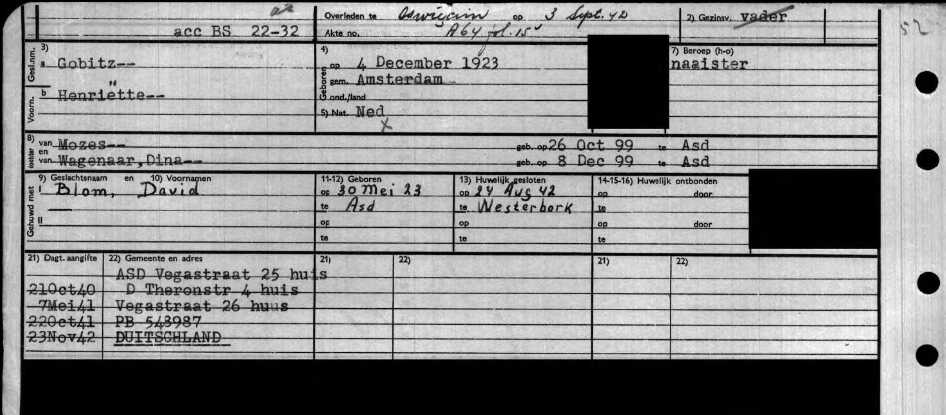 acc BS 22-32
Overleden te Oswiecim op 3 Sept. 42
Akte no. A64 fol. 15
2) Gezinsv. vader
52
3)
Gesl.nm. a Gobitz--
Voorn. b Henriëtte--
4)
Geboren op 4 December 1923
gem. Amsterdam
ond./land
5) Nat. Ned
x
7) Beroep (h-o)
naaister
8) van Mozes-- geb. op 26 Oct 99 te Asd
en
van Wagenaar, Dina-- geb. op 8 Dec 99 te Asd
Gehuwd met
9) Geslachtsnaam en 10) Voornamen
I Blom, David
II
11-12) Geboren
op 30 Mei 23
te Asd
op
te
13) Huwelijk gesloten
op 24 Aug 42
te Westerbork
op
te
14-15-16) Huwelijk ontbonden
op door
te
op door
te
21) Dagt. aangifte 22) Gemeente en adres 21) 22) 21) 22)
ASD Vegastraat 25 huis
21Oct40 D Theronstr 4 huis
7Mei41 Vegastraat 26 huus
22Oct41 PB 543987
23Nov42 DUITSCHLAND